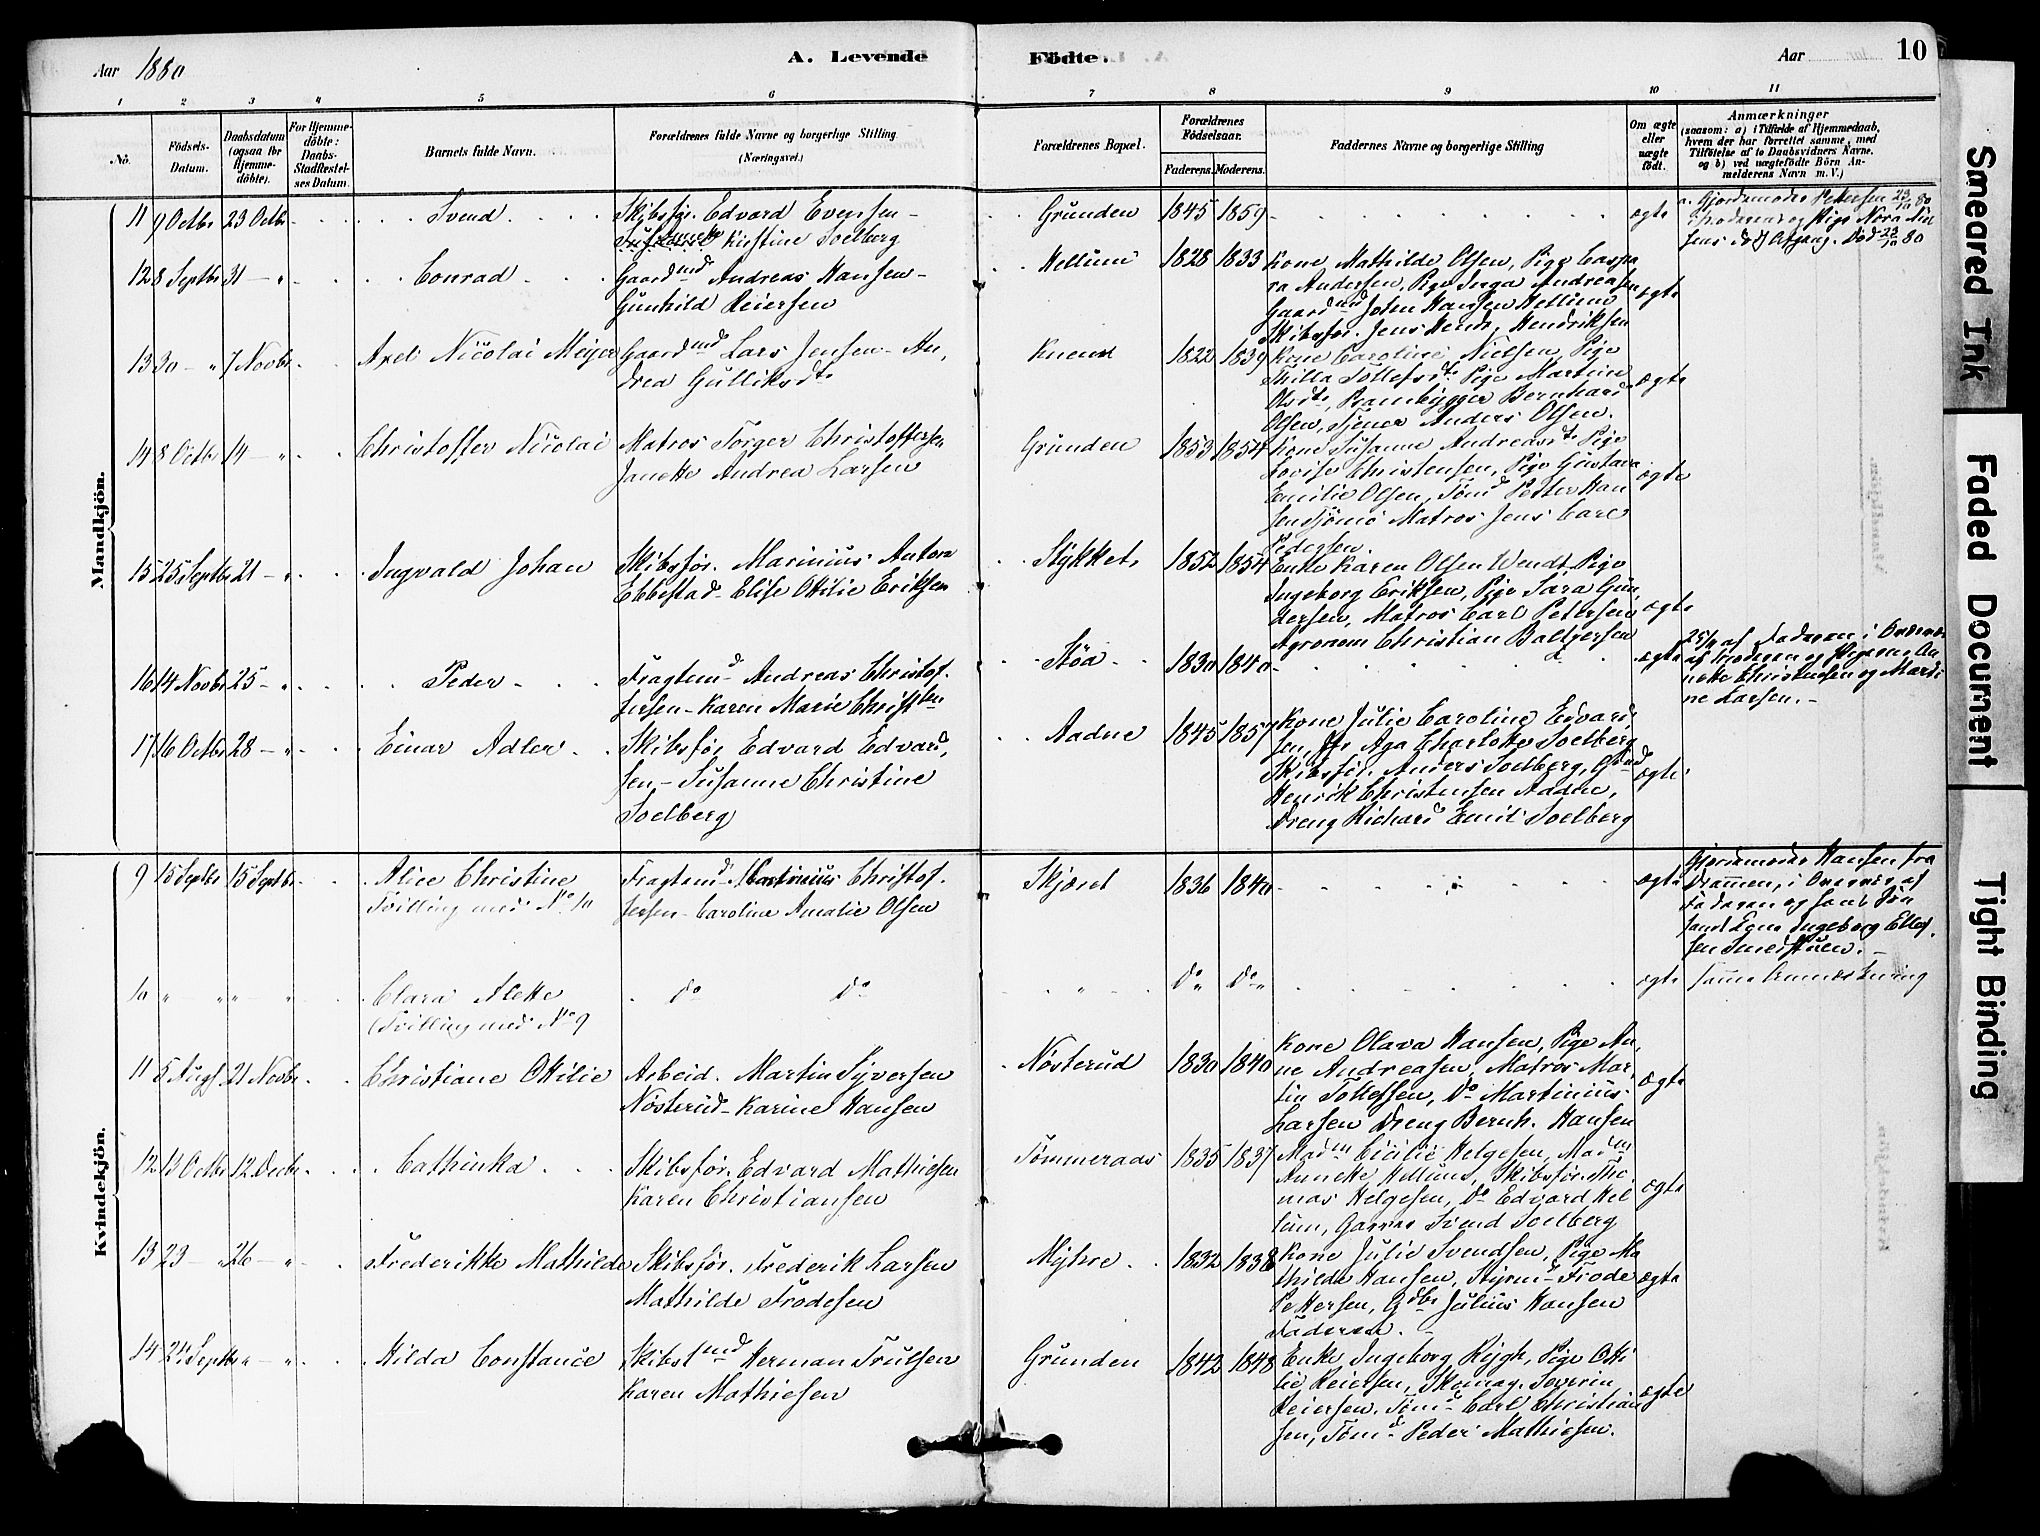 Aar 1880
A. Levende
Födte.
Aar
10
1 2 3 4 5 6 7 8 9 10 11
No.
Födsels-Datum.
Daabsdatum (ogsaa for Hjemme-döbte).
For Hjemme-döbte: Daabs-Stadfæstel-ses Datum.
Barnets fulde Navn.
Forældrenes fulde Navne og borgerlige Stilling (Næringsvei.)
Forældrenes Bopæl.
Forældrenes Födselsaar.
Faderens. Moderens.
Faddernes Navne og borgerlige Stilling
Om ægte eller uægte födt.
Anmærkninger
(saasom: a) i Tilfælde af Hjemmedaab, hvem der har forrettet samme, med Tilföielse af to Daabsvidners Navne, og b) ved uægtefödte Börn Anmelderens Navn m. V.)
Mandkjön.
11 9 Octbr 23 Octbr Svend
Skibsfør. Edvard Evensen -
Kirstine Soelberg
Grunden 1845 1859 ægte
a. Gjordemoder Petersen 23/10 80
Pige Nora Niel
sens Død 23/10 80
12 8 Septbr 31 - " Conrad
Gaardmd Andreas Hansen -
Gunhild Reiersen
Hellum 1828 1833
Kone Mathilde Olsen, Pige Caspa
ra Andersen, Pige Inga Andreasen
Gaardmd Johan Hansen Hellum
Skibsfør. Jens Hendr. Hendriksen
ægte
13 30 - " 7 Novbr Axel Nicolai Meyer
Gaardmd Lars Jensen - An,
drea Gulliksdt
Knem 1822 1839
Kone Caroline Nielsen, Pige
Thilla Tollefsdt. Pige Martine
Olsdt, Prambygger Bernhard
Olsen, Tjener Anders Olsen.
ægte
14 8 Octbr 14 - " Christoffer Nicolai
Matros Torger Christoffersen
Janette Andrea Larsen
Grunden 1853 1854
Kone Susanne Andreasdt. Pige
Lovise Christensen, Pige Gustava
Emilie Olsen, Tømd Petter Han
sen Tjömö Matros Jens Carl
Pedersen.
ægte
15 25 Septbr 21 - " Ingvald Johan
Skibsfør. Marinius Anton
Ebbestad - Elise Otilie Eriksen
Stykket, 1852 1854
Enke Karen Olsen Wendt, Pige
Ingeborg Eriksen, Pige Sara Gun,
dersen, Matros Carl Petersen
Agronom Christian Baltzersen
ægte
16 14 Novbr 25 - " Peder
Fragtemd Andreas Christof,
fersen - Karen Marie Christen
Støa 1830 1840 ægte
25/11 af Faderen i Overvær
af Moderen og Pigerne An
nette Christensen og Marti
ne Larsen. -
17 16 Octbr 28 - " Einar Adler
Skibsfør Edvard Edvard,
sen - Susanne Christine
Soelberg
Aadne 1845 1857
Kone Julie Caroline Edvard
sen, Aga Charlotte Soelberg
Skibsfør. Anders Soelberg, Gmd
Henrik Christensen Aadne,
Dreng Richard Emil Soelberg
ægte
Kvindekjön.
9 15 Septbr 15 Septbr Alice Christine
Tvilling med No 10
Fragtemd Martinius Christof,
fersen - Caroline Amalie Olsen
Skjæret 1836 1840 ægte
Gjordemoder Hansen fra
Drammen, i Overvær af
Faderen og
Ingeborg Ellef,
sen
10 " " " " Clara Alette
(Tvilling med No 9
do do
" do do ægte samme Anmærkning
11 5 Augst 21 Novbr Christiane Otilie
Arbeid. Martin Syversen
Nøsterud - Karine Hansen
Nøsterud 1830 1840
Kone Olava Hansen, Pige An,
ne Andreasen, Matros Mar,
tin Tollefsen, Do Martinius
Larsen Dreng Bernh. Hansen
ægte
12 13 Octbr 12 Decbr Cathinka
Skibsfør. Edvard Mathiesen
Karen Christiansen
Tømmeraas 1835 1837
Madm Cicilie Helgesen, Madm
Annette Hellum, Skibsfør. Tho
mas Helgesen, Do Edvard Hel
lum, Garver Svend Soelberg
ægte
13 23 - " 26 - " Frederikke Mathilde
Skibsfør. Frederik Larsen
Mathilde Frodesen
Myhre 1832 1838
Kone Julie Svendsen, Pige Ma
thilde Hansen, Styrmd Frode
Pettersen, Gdbr Julius Hansen
Faderen. -
ægte
14 24 Septbr " - " Hilda Constance
Skibstmd Herman Trulsen
Karen Mathiesen
Grunden 1842 1848
Enke Ingeborg Rÿgh, Pige Otti
lie Reiersen, Skomag. Severin
Reiersen, Tømd Carl Christian
sen, Tømd Peder Mathiesen.
ægte
Smeared Ink
Faded Document
Tight Binding